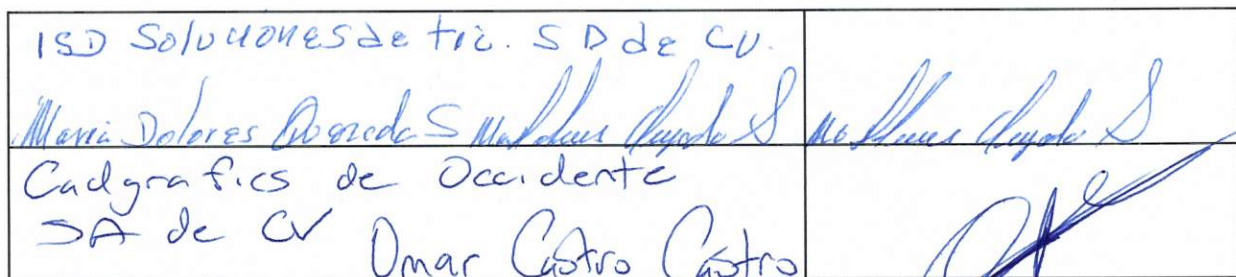 ISD Soluciones de tic. S D de CV.
Maria Dolores Quezada S
Cadgrafics de Occidente
SA de CV Omar Castro Castro